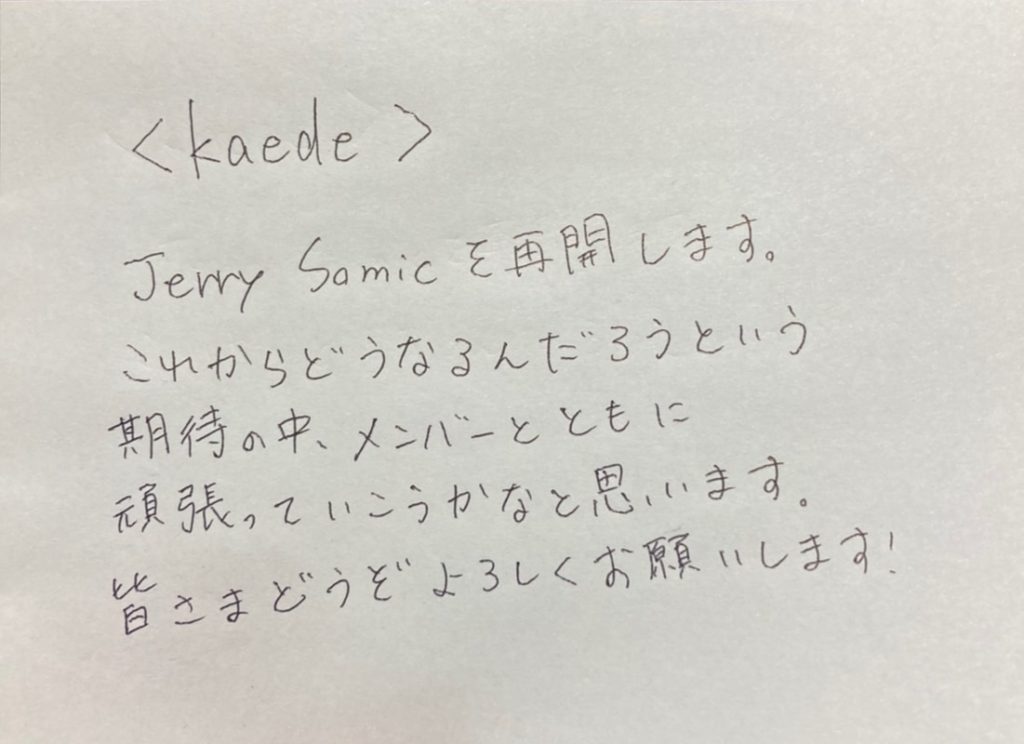 <kaede>
Jerry Somicを再開します。
これからどうなるんだろうという
期待の中、メンバーとともに
頑張っていこうかなと思います。
皆さまどうぞよろしくお願いします!